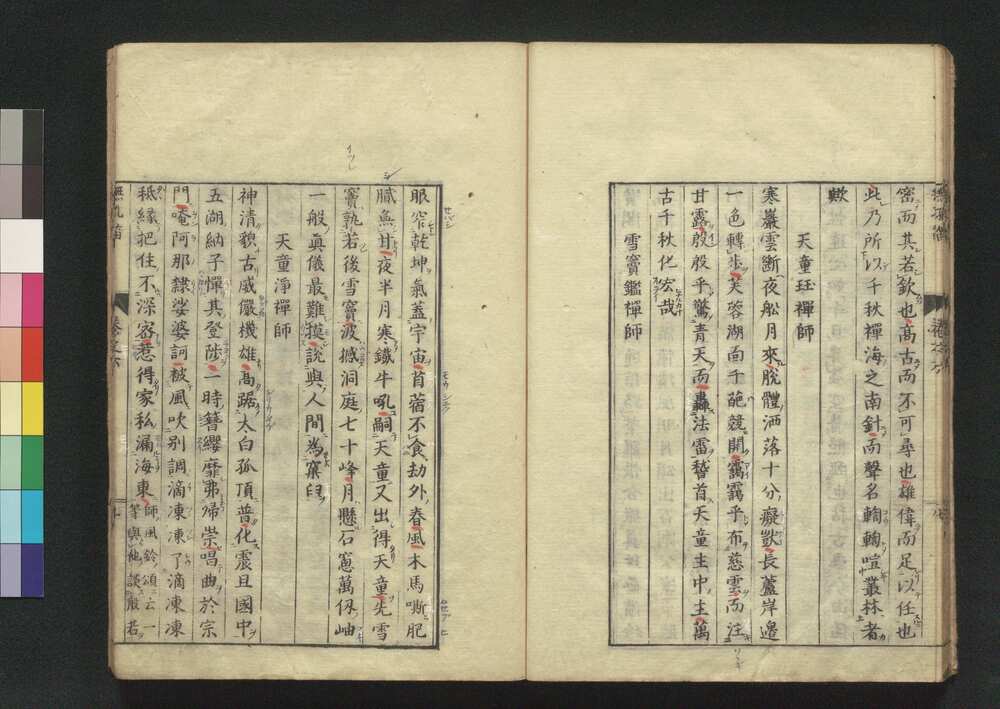 密而其若欽也高古而不可尋也雄偉而足以任也
此乃所以千秋禪海之南針而聲名輷輷喧叢林者
歟
天童珏禪師
寒巖雲斷夜船月來脫體洒落十分癡獃長蘆岸邊
一色轉步芙蓉湖南千葩競開靄靄乎布慈雲而注
甘露殷殷乎驚青天而轟法雷稽首天童主中主萬
古千秋化宏哉
雪竇鑑禪師
眼窄乾坤氣蓋宇宙苜蓿不食劫外春風木馬嘶肥
臓無甘夜半月寒鐵牛吼嗣天童又出得天童先雪
竇孰若後雪竇波撼洞庭七十峰月懸石窻萬仭岫
一般真儀最難摸說與人間為窠臼
天童淨禪師
神清貌古威儼機雄高踞太白孤頂普化震旦國中
五湖納子憚其登陟一時簪纓靡弗歸崇唱曲於宗
門唵阿那隸娑婆訶被風吹別調滴凍凍了滴凍凍
秪緣把住不深密惹得家私漏海東師風鈴頌云一
等與他談般若
無孔笛
卷之六